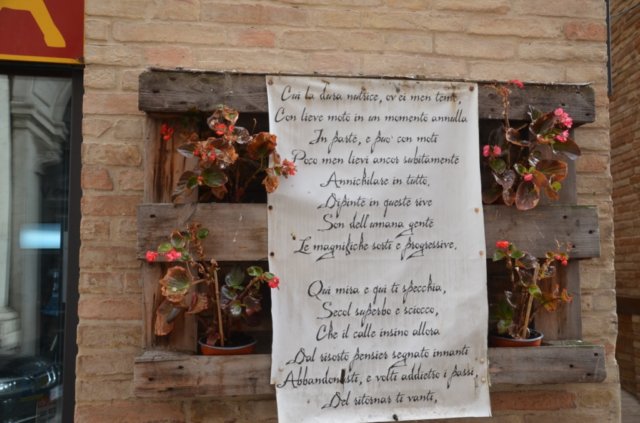 A
Cui la dura nutrice, ov'ei men teme,
Con lieve moto in un momento annulla
In parte, e può con moti
Poco men lievi ancor subitamente
Annichilare in tutto.
Dipinte in queste rive
Son dell'umana gente
Le magnifiche sorti e progressive.
Qui mira e qui ti specchia,
Secol superbo e sciocco,
Che il calle insino allora
Dal risorto pensier segnato innanti
Abbandonasti, e volti addietro i passi,
Del ritornar ti vanti,